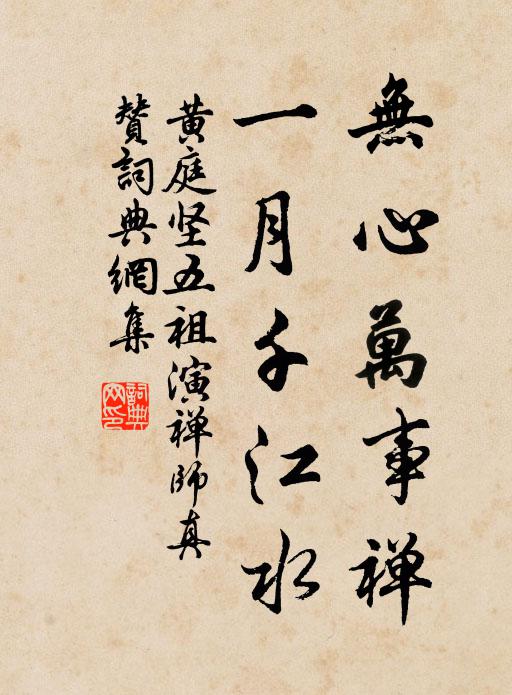 無心萬事禅
一月千江水
黄庭坚五祖演禅師真
贊詞典網集
詞典网印